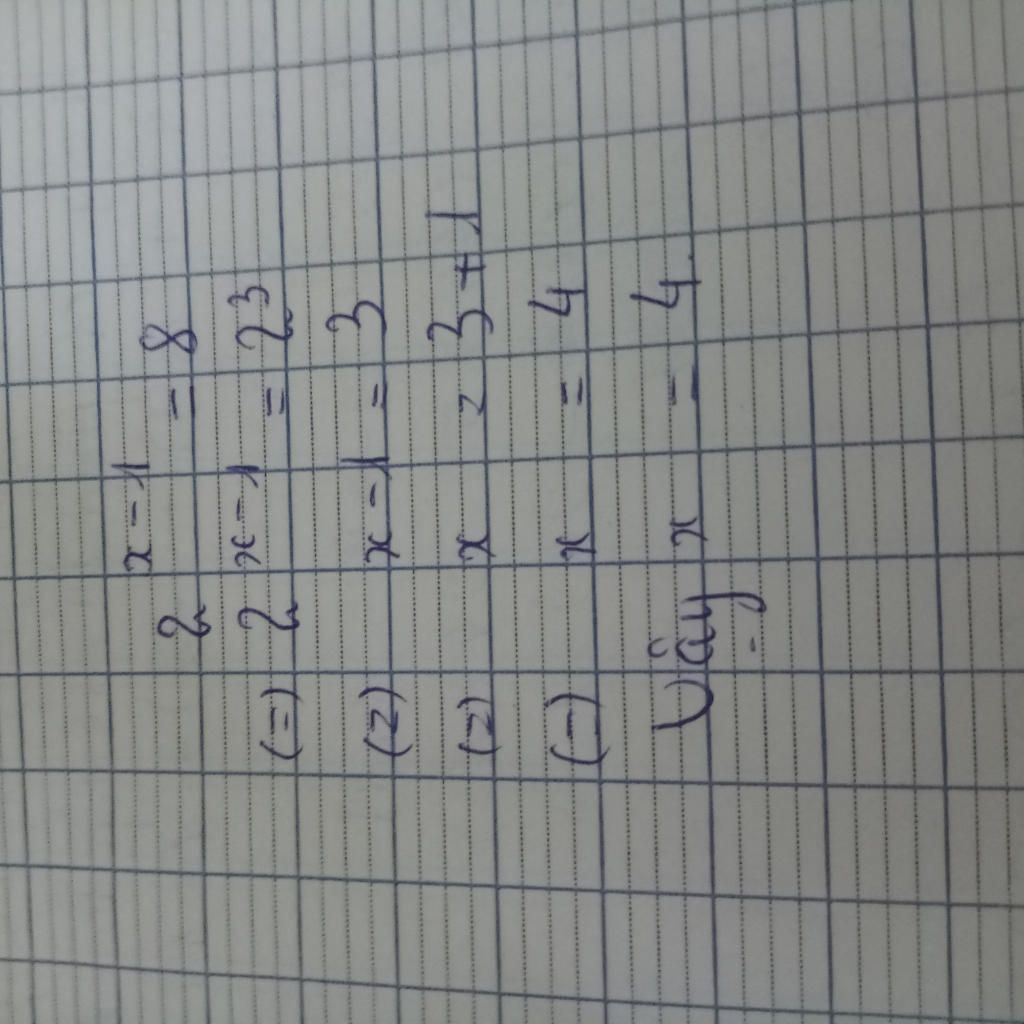 2^{x-1} = 8
(=) 2^{x-1} = 2^3
(=) x-1 = 3
(=) x = 3+1
(=) x = 4
Vậy x = 4.